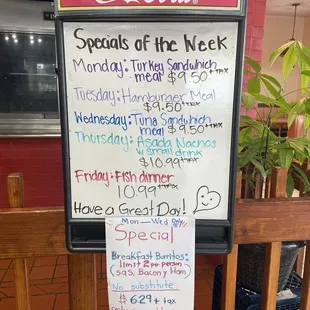 Specials of the Week
Monday: Turkey Sandwich
meal $9.50 + tax
Tuesday: Hamburger Meal
$9.50 + tax
Wednesday: Tuna Sandwich
meal $9.50 + tax
Thursday: Asada Nachos
w small drink
$10.99 + tax
Friday: Fish dinner
10.99 + tax
Have a Great Day!
Mon - Wed Only
Special
Breakfast Burritos:
limit 2 per person
Bacon y Ham
No substitute
$6.29 + tax